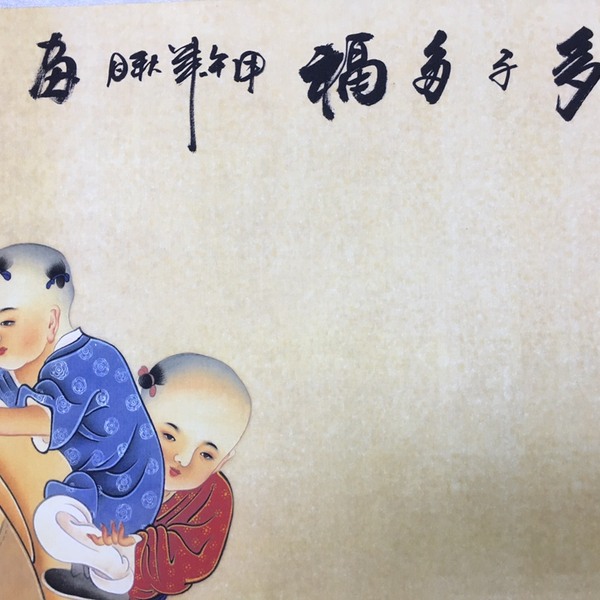 多子多福甲午年秋月